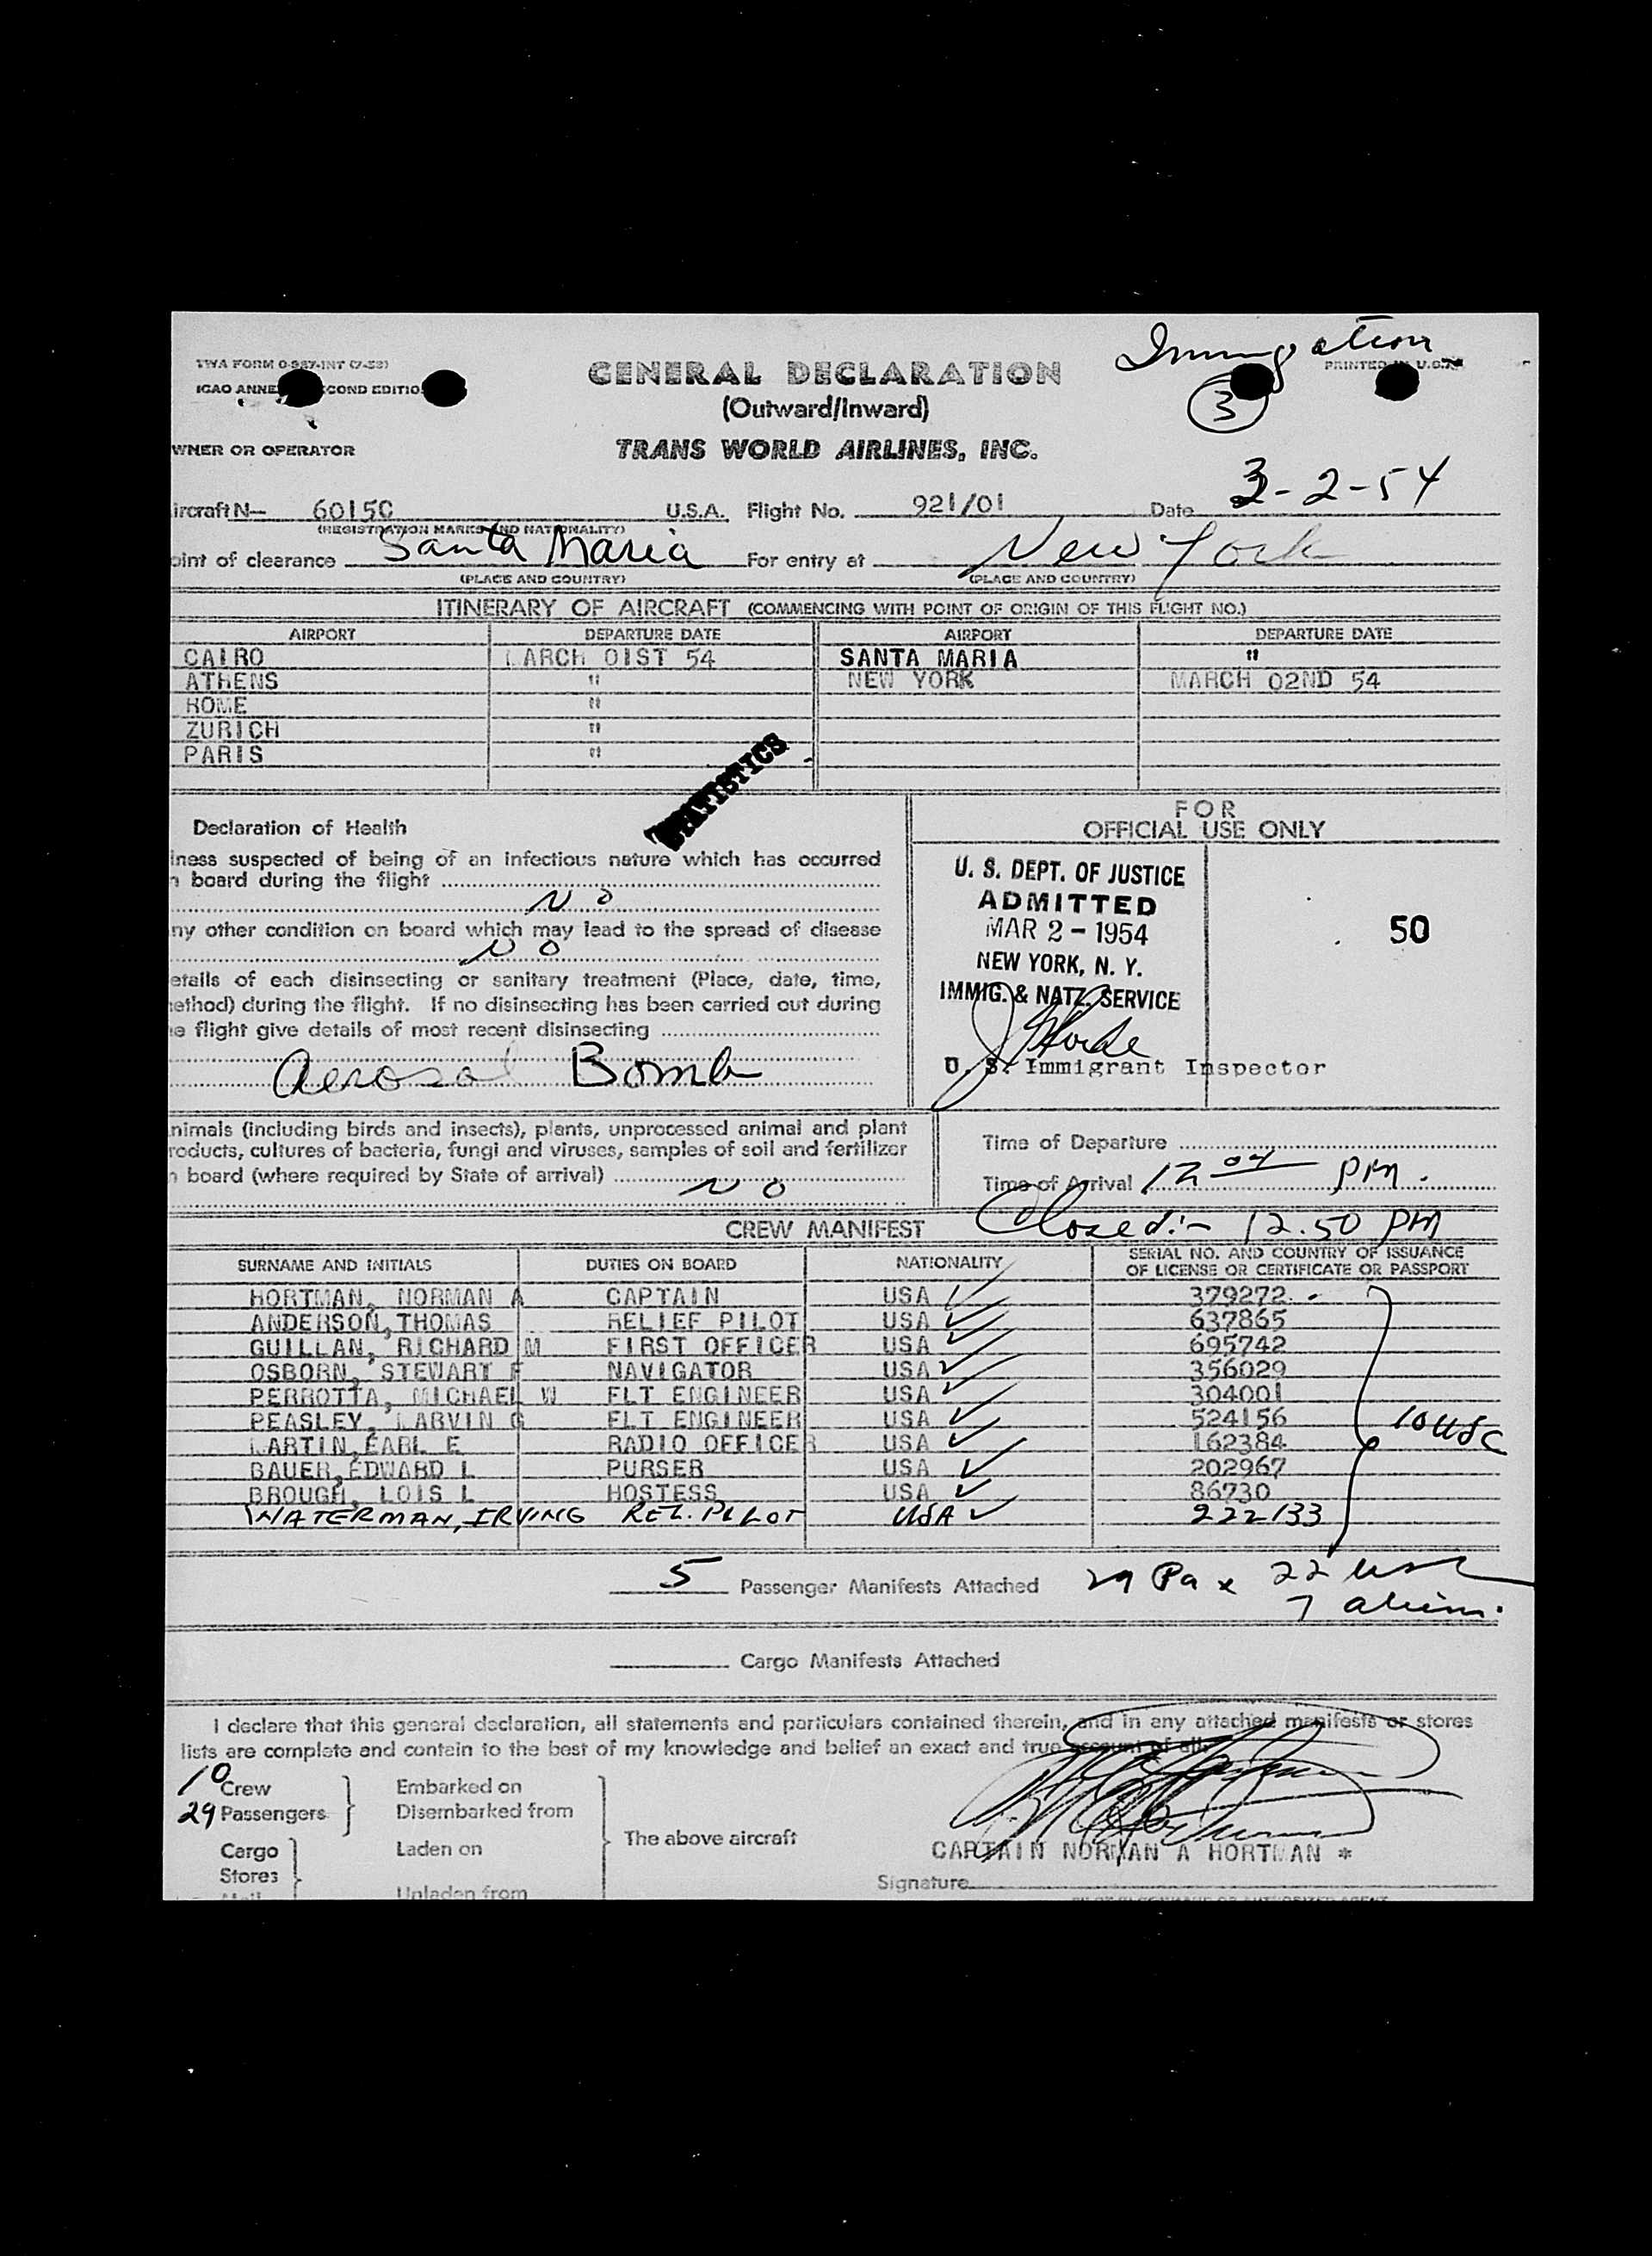 Immigration
TWA FORM O-967-INT (7-53)
PRINTED IN U.S.A.
GENERAL DECLARATION
ICAO ANNE COND EDITIO
3
(Outward/Inward)
WNER OR OPERATOR
TRANS WORLD AIRLINES, INC.
ircraft N— 6015C U.S.A. Flight No. 921/01 Date 3-2-54
(REGISTRATION MARKS AND NATIONALITY)
oint of clearance Santa Maria For entry at New York
(PLACE AND COUNTRY) (PLACE AND COUNTRY)
ITINERARY OF AIRCRAFT (COMMENCING WITH POINT OF ORIGIN OF THIS FLIGHT NO.)
AIRPORT DEPARTURE DATE AIRPORT DEPARTURE DATE
CAIRO MARCH 01ST 54 SANTA MARIA "
ATHENS " NEW YORK MARCH 02ND 54
ROME "
ZURICH "
PARIS "
STATISTICS
Declaration of Health
lness suspected of being of an infectious nature which has occurred
n board during the flight
No
ny other condition on board which may lead to the spread of disease
No
etails of each disinsecting or sanitary treatment (Place, date, time,
ethod) during the flight. If no disinsecting has been carried out during
e flight give details of most recent disinsecting
Aerosol Bomb
FOR
OFFICIAL USE ONLY
U. S. DEPT. OF JUSTICE
ADMITTED
MAR 2 - 1954
NEW YORK, N. Y.
IMMIG. & NATZ. SERVICE
U. S. Immigrant Inspector
50
nimals (including birds and insects), plants, unprocessed animal and plant
roducts, cultures of bacteria, fungi and viruses, samples of soil and fertilizer
n board (where required by State of arrival)
No
Time of Departure
Time of Arrival 12 04 PM.
Closed:- 12.50 PM
CREW MANIFEST
SURNAME AND INITIALS DUTIES ON BOARD NATIONALITY SERIAL NO. AND COUNTRY OF ISSUANCE
OF LICENSE OR CERTIFICATE OR PASSPORT
HORTMAN, NORMAN A CAPTAIN USA 379272
ANDERSON, THOMAS RELIEF PILOT USA 637865
GUILLAN, RICHARD M FIRST OFFICER USA 695742
OSBORN, STEWART F NAVIGATOR USA 356029
PERROTTA, MICHAEL W FLT ENGINEER USA 304001
PEASLEY, MARVIN G FLT ENGINEER USA 524156
MARTIN, EARL E RADIO OFFICER USA 162384
BAUER, EDWARD L PURSER USA 202967
BROUGH, LOIS L HOSTESS USA 86730
WATERMAN, IRVING REL. PILOT USA 222133
10 USC
5 Passenger Manifests Attached 29 Pax 22 usc
7 aliens.
Cargo Manifests Attached
I declare that this general declaration, all statements and particulars contained therein, and in any attached manifests or stores
lists are complete and contain to the best of my knowledge and belief an exact and true account of all:
10 Crew
29 Passengers
Embarked on
Disembarked from
Cargo
Stores
Mail
Laden on
Unladen from
The above aircraft
CAPTAIN NORMAN A HORTMAN *
Signature